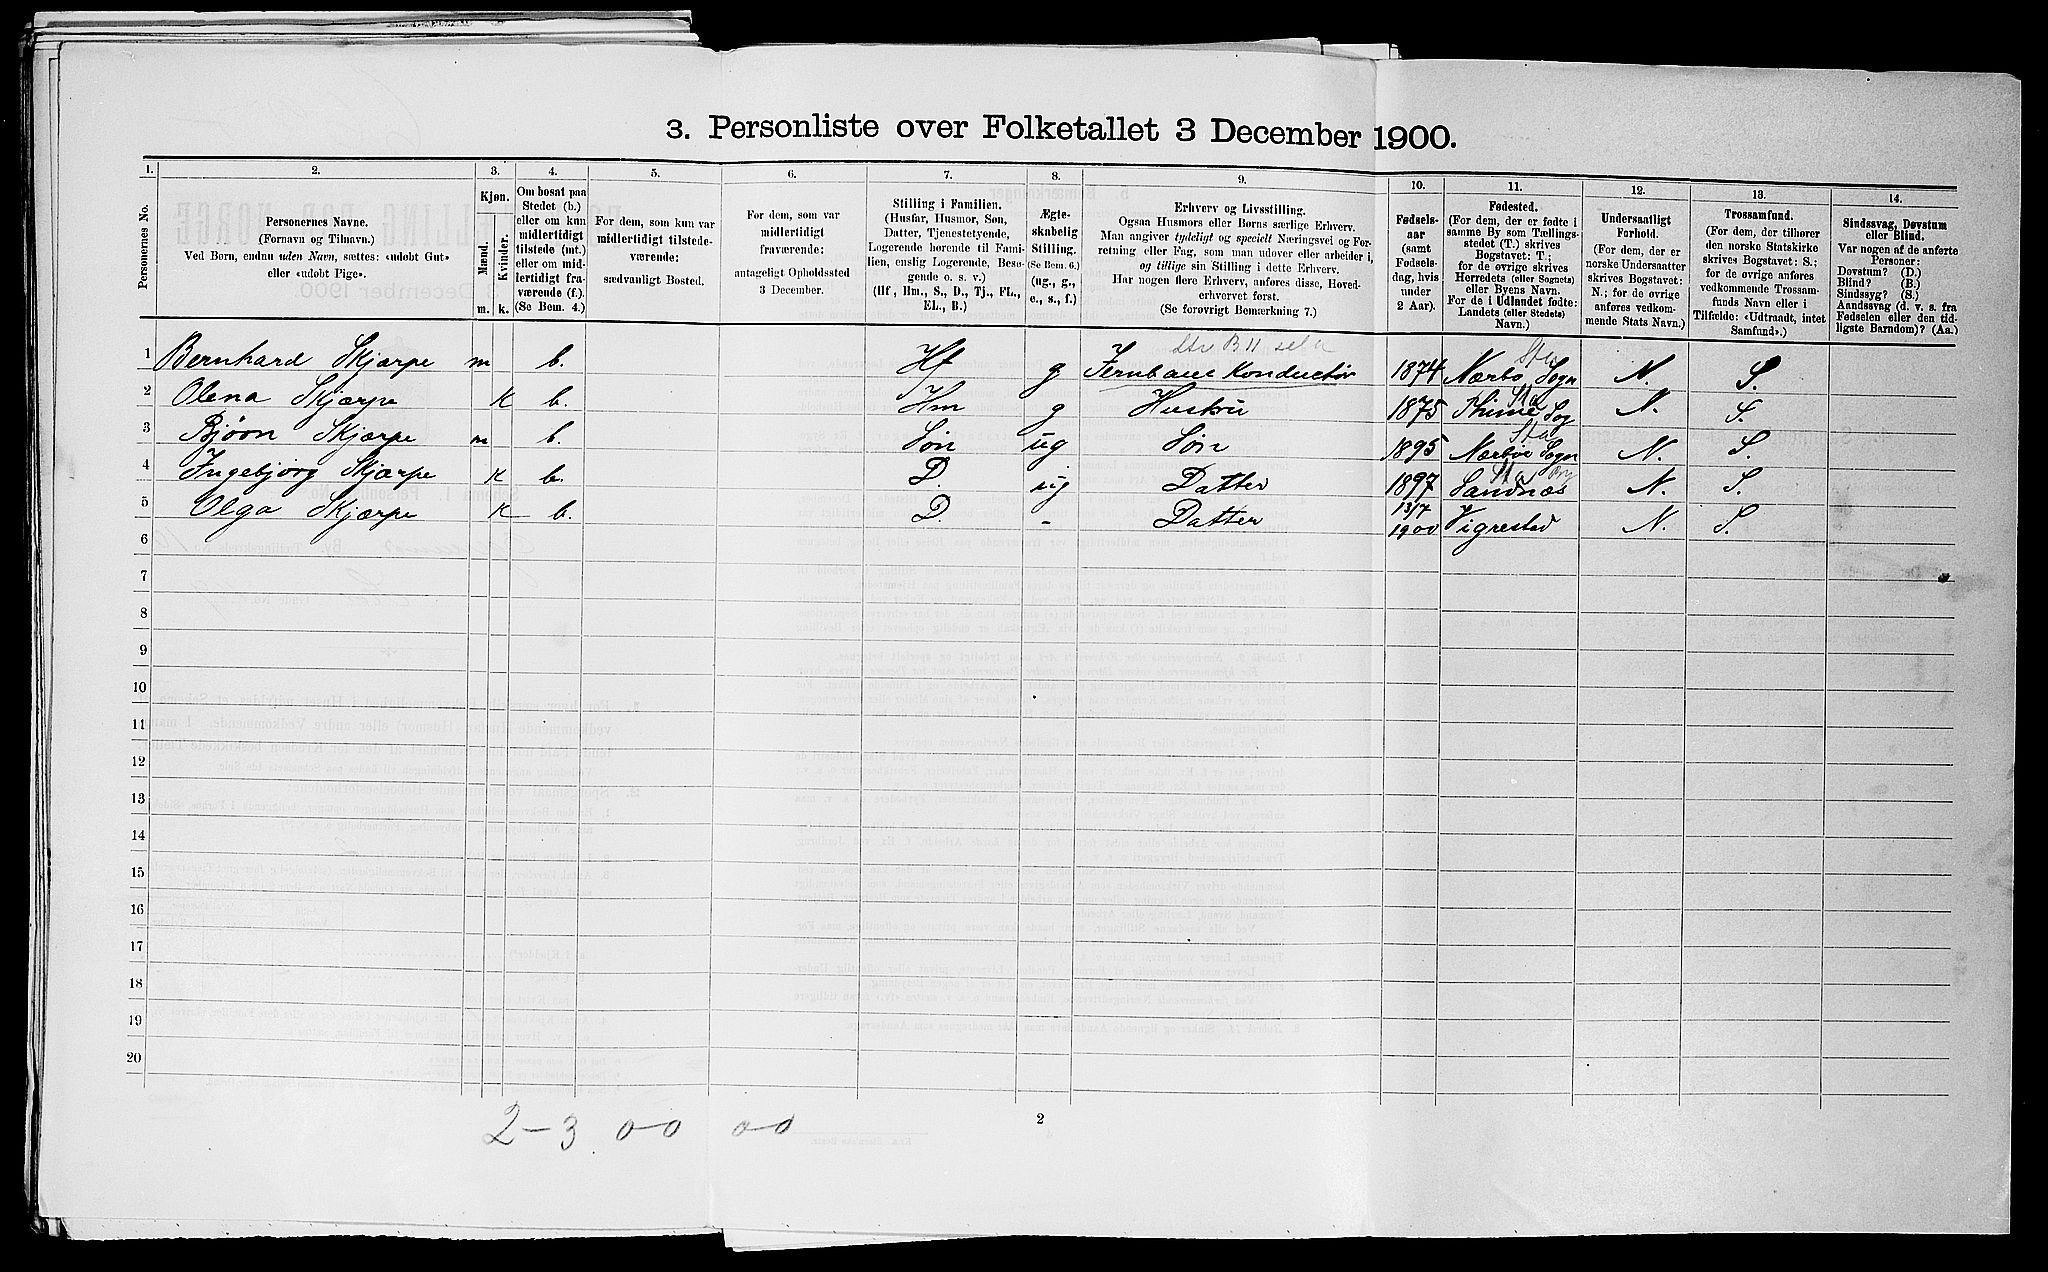 3. Personliste over Folketallet 3 December 1900.
1. 2. 3. 4. 5. 6. 7. 8. 9. 10. 11. 12. 13. 14.
Personernes No.
Personernes Navne.
(Fornavn og Tilnavn.)
Ved Børn, endnu uden Navn, sættes: «udøbt Gut»
eller «udøbt Pige».
Kjøn.
Mænd. Kvinder.
m. k.
Om bosat paa
Stedet (b.)
eller om kun
midlertidigt
tilstede (mt.)
eller om mid-
lertidigt fra-
værende (f.).
(Se Bem. 4.)
For dem, som kun var
midlertidigt tilstede-
værende:
sædvanligt Bosted.
For dem, som var
midlertidigt
fraværende:
antageligt Opholdssted
3 December.
Stilling i Familien.
(Husfar, Husmor, Søn,
Datter, Tjenestetyende,
Logerende hørende til Fami-
lien, enslig Logerende, Besø-
gende o. s. v.)
(Hf., Hm., S., D., Tj., FL.,
EL., B.)
Ægte-
skabelig
Stilling.
(Se Bem. 6.)
(ug., g.,
e., s., f.)
Erhverv og Livsstilling.
Ogsaa Husmors eller Børns særlige Erhverv.
Man angiver tydeligt og specielt Næringsvei og For-
retning eller Fag, som man udøver eller arbeider i,
og tillige sin Stilling i dette Erhverv.
Har nogen flere Erhverv, anføres disse, Hoved-
erhvervet først.
(Se forøvrigt Bemærkning 7.)
Fødsels-
aar
(samt
Fødsels-
dag, hvis
under
2 Aar).
Fødested.
(For dem, der er fødte i
samme By som Tællings-
stedet (T.) skrives
Bogstavet: T.;
for de øvrige skrives
Herredets (eller Sognets)
eller Byens Navn.
For de i Udlandet fødte:
Landets (eller Stedets)
Navn.)
Undersaatligt
Forhold.
(For dem, der er
norske Undersaatter
skrives Bogstavet:
N.; for de øvrige
anføres vedkom-
mende Stats Navn.)
Trossamfund.
(For dem, der tilhører
den norske Statskirke
skrives Bogstavet: S.;
for de øvrige anføres
vedkommende Trossam-
funds Navn eller i
Tilfælde: «Udtraadt, intet
Samfund».)
Sindssvag, Døvstum
eller Blind.
Var nogen af de anførte
Personer:
Døvstum? (D.)
Blind? (B.)
Sindssyg? (S.)
Aandssvag (d. v. s. fra
Fødselen eller den tid-
ligste Barndom)? (Aa.)
1 Bernhard Skjærpe m b. Hf g Jernbane Konductør 1874 Nærbø Sogn N. S.
2 Olena Skjærpe K b. Hm g Hustru 1875 Thime Sog N. S.
3 Bjørn Skjærpe m b. Søn ug Søn 1895 Nærbøe Sogn N. S.
4 Ingebjørg Skjærpe K b. D. ug Datter 1897 Sandnæs N. S.
5 Olga Skjærpe K b. D. - Datter 13/7 1900 Vigrestad N. S.
6
7
8
9
10
11
12
13
14
15
16
17
18
19
20
2-3 0-0 0-0
2